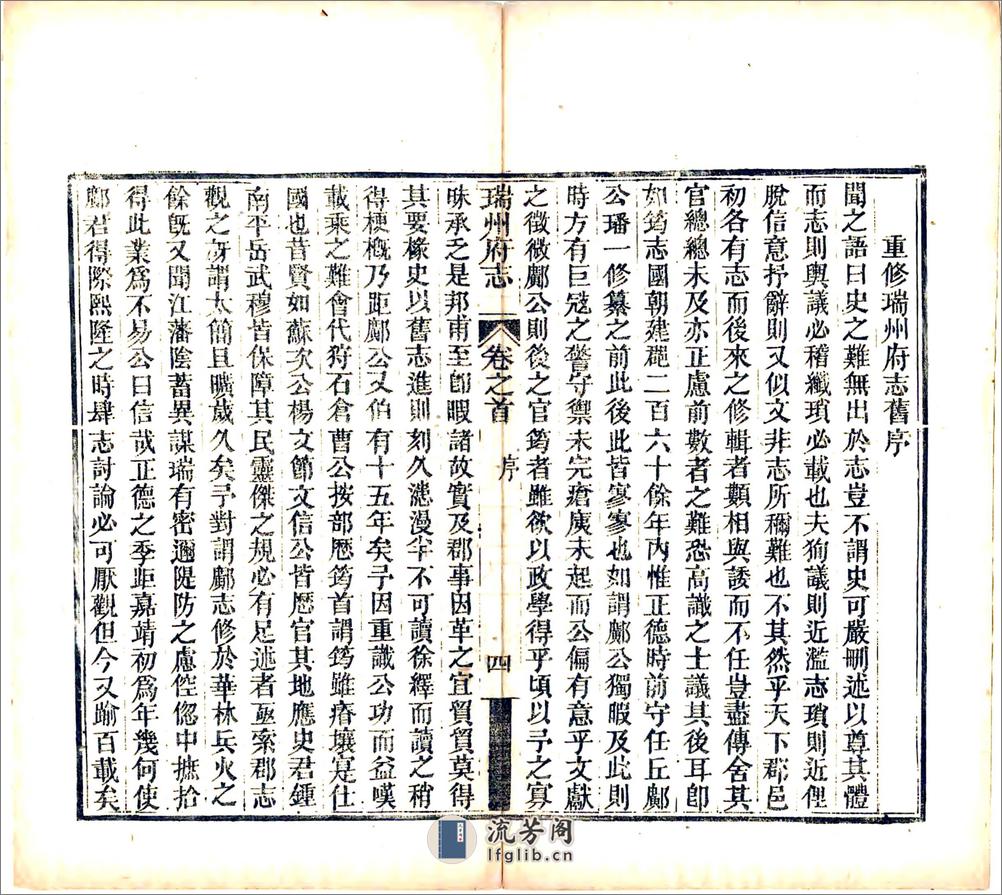 重修瑞州府志舊序
聞之語曰史之難無出於志豈不謂史可嚴刪述以尊其體
而志則輿議必稽纖瑣必載也夫狥議則近濫志瑣則近俚
脫信意抒辭則又似文非志所稱難也不其然乎天下郡邑
初各有志而後來之修輯者類相與諉而不任豈盡傳舍其
官總總未及亦正慮前數者之難恐高識之士議其後耳卽
如筠志國朝建罷二百六十餘年內惟正德時前守任丘鄺
公璠一修纂之前此後此皆寥寥也如謂鄺公獨暇及此則
時方有巨寇之警守禦未完瘡痍未起而公偏有意乎文獻
之徵微鄺公則後之官筠者雖欲以政學得乎頃以予之寡
昧承乏是邦甫至卽暇諸故實及郡事因革之宜貿貿莫得
其要椽史以舊志進則刻久漶漫半不可讀徐繹而讀之稍
得梗槪乃距鄺公又伯有十五年矣予因重識公功而益嘆
載乘之難會代狩石倉曹公按部歷筠首謂筠雖瘠壤寔仕
國也昔賢如蘇次公楊文節文信公皆歷官其地應史君鍾
南平岳武穆皆保障其民靈傑之規必有足述者亟索郡志
觀之訝謂太簡且曠歲久矣予對謂鄺志修於華林兵火之
餘旣又聞江藩陰蓄異謀瑞有密邇隄防之慮倥偬中摭拾
得此業爲不易公曰信哉正德之季距嘉靖初爲年幾何使
鄺君得際熙隆之時肆志討論必可厭觀但今又踰百載矣
瑞州府志
卷之首
序
四
流芳阁
lfglib.cn